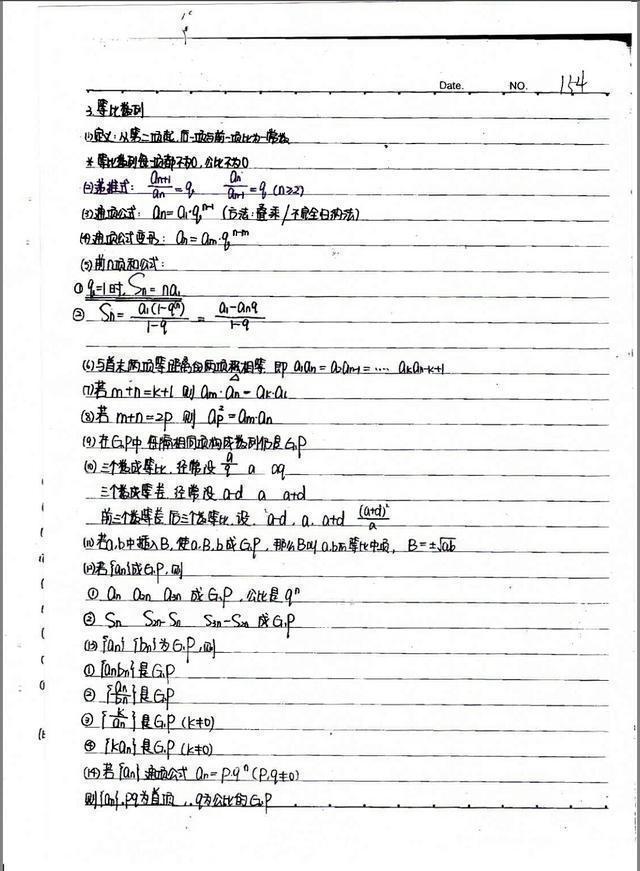 Date. NO. 154
3. 等比数列
(1) 定义: 从第二项起, 后一项与前一项比为一常数
* 等比数列每一项都不为0, 公比不为0
(2) 递推式: aₙ₊₁/aₙ = q, aₙ/aₙ₋₁ = q (n≥2)
(3) 通项公式: aₙ = a₁·qⁿ⁻¹ (方法: 叠乘/不完全归纳法)
(4) 通项公式变形: aₙ = aₘ·qⁿ⁻ᵐ
(5) 前n项和公式:
① q=1时, Sₙ = na₁
② Sₙ = a₁(1-qⁿ)/1-q = a₁-aₙq/1-q
(6) 与首末两项等距离的两项积相等 即 a₁aₙ = a₂aₙ₋₁ = .... aₖaₙ₋ₖ₊₁
(7) 若 m+n=k+l 则 aₘ·aₙ = aₖ·aₗ
(8) 若 m+n=2p 则 aₚ² = aₘ·aₙ
(9) 在G.P中 每隔相同项构成数列仍是G.P
(10) 三个数成等比, 经常设 a/q a aq
三个数成等差, 经常设 a-d a a+d
前三个数等差 后三个数等比, 设, a-d, a, a+d (a+d)²/a
(11) 若a,b中插入B, 使a,B,b成G.P, 那么B叫a,b的等比中项, B=±√ab
(12) 若{aₙ}成G.P, 则
① aₙ a₂ₙ a₃ₙ 成G.P, 公比是qⁿ
② Sₙ S₂ₙ-Sₙ S₃ₙ-S₂ₙ 成G.P
(13) {aₙ} {bₙ}为G.P, 则
① {aₙbₙ}是G.P
② {aₙ/bₙ}是G.P
③ {k/aₙ}是G.P (k≠0)
④ {kaₙ}是G.P (k≠0)
(14) 若{aₙ}通项公式 aₙ = p·qⁿ (p,q≠0)
则{aₙ}, pq为首项, q为公比的G.P